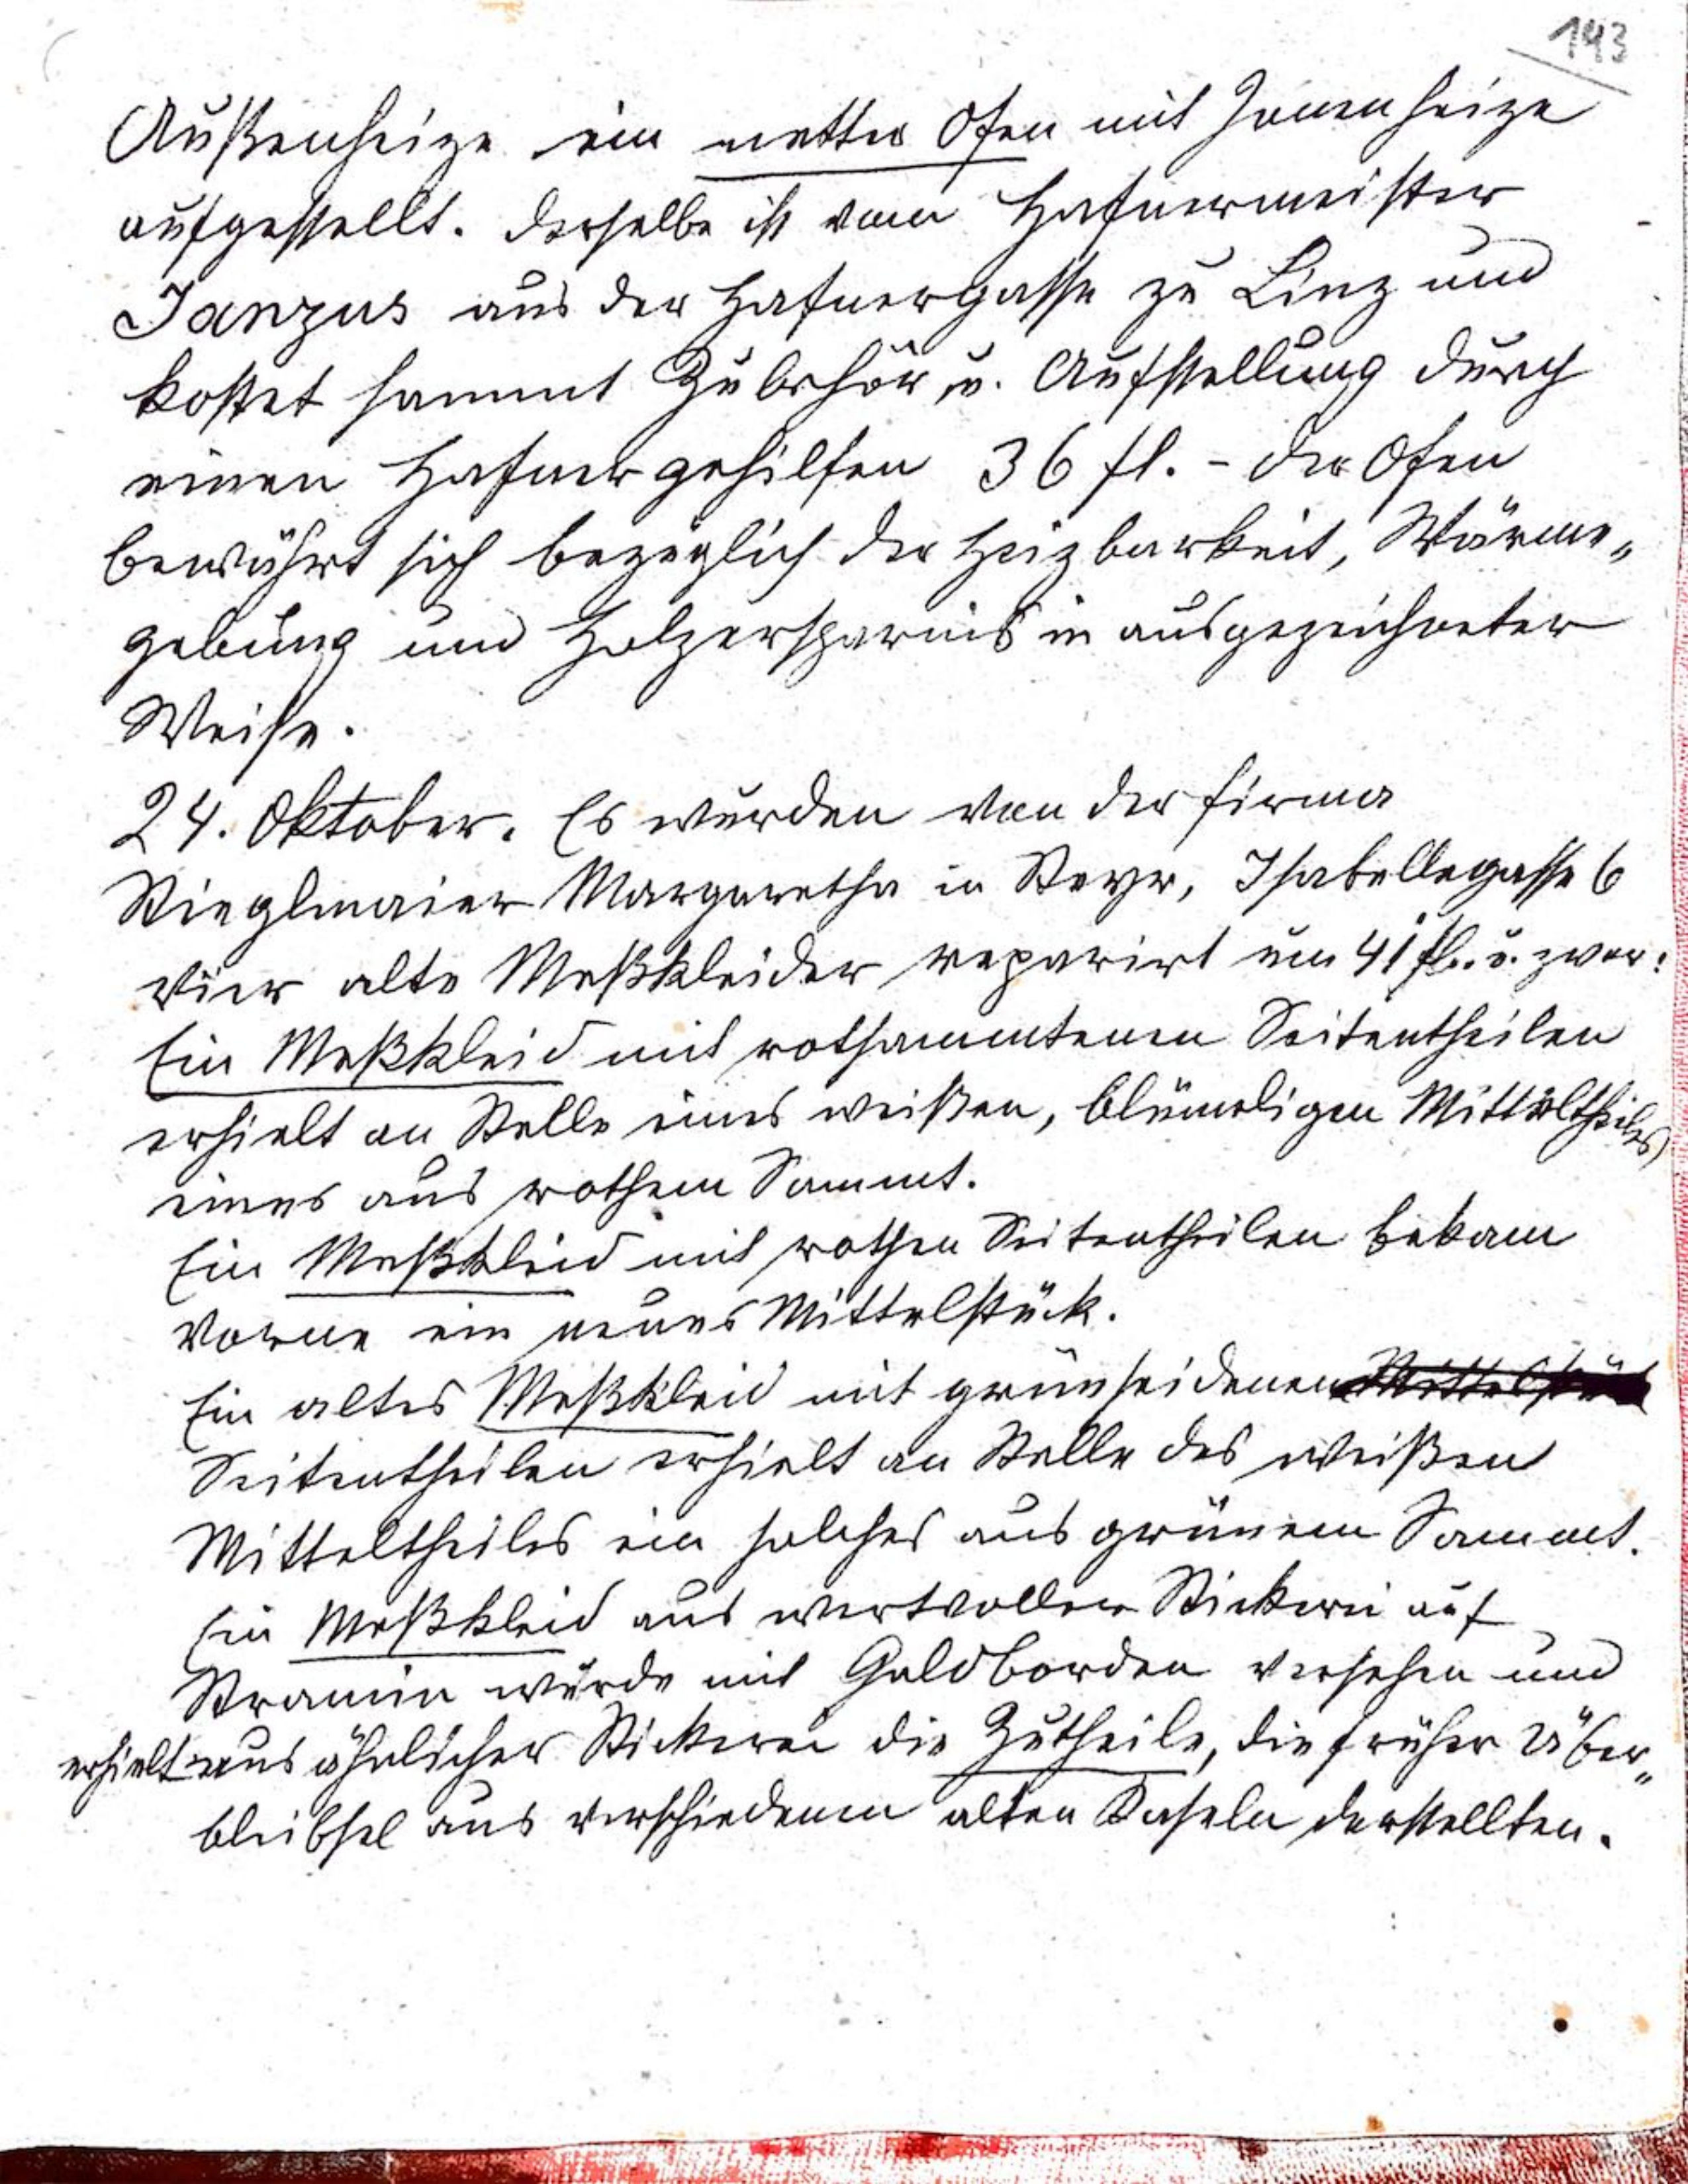 143
Außenheize ein netter Ofen mit Innenheize
aufgestellt. Derselbe ist vom Hafnermeister
Janzus aus der Hafnergasse zu Linz und
kostet sammt Zubehör u. Aufstellung durch
einen Hafnergehilfen 36 fl. - Der Ofen
bewährt sich bezüglich der Heizbarkeit, Wärme„
gebung und Holzersparnis in ausgezeichneter
Weise.
24. Oktober. Es wurden von der Firma
Stieglmaier Margaretha in Steyr, Isabellegasse 6
vier alte Meßkleider reparirt um 41 fl. u. zwar:
Ein Meßkleid mit rothsammtenen Seitentheilen
erhielt an Stelle eines weißen, blümeligen Mitteltheiles
eines aus rothem Sammt.
Ein Meßkleid mit rothen Seitentheilen bekam
vorne ein neues Mittelstück.
Ein altes Meßkleid mit grünseidenen Mittelstück
Seitentheilen erhielt an Stelle des weißen
Mitteltheiles ein solches aus grünem Sammt.
Ein Meßkleid aus wertvoller Stickerei auf
Stramin wurde mit Goldborden versehen und
erhielt aus ähnlicher Stickerei die Zutheile, die früher Über„
bleibsel aus verschiedenen alten Kaseln darstellten.